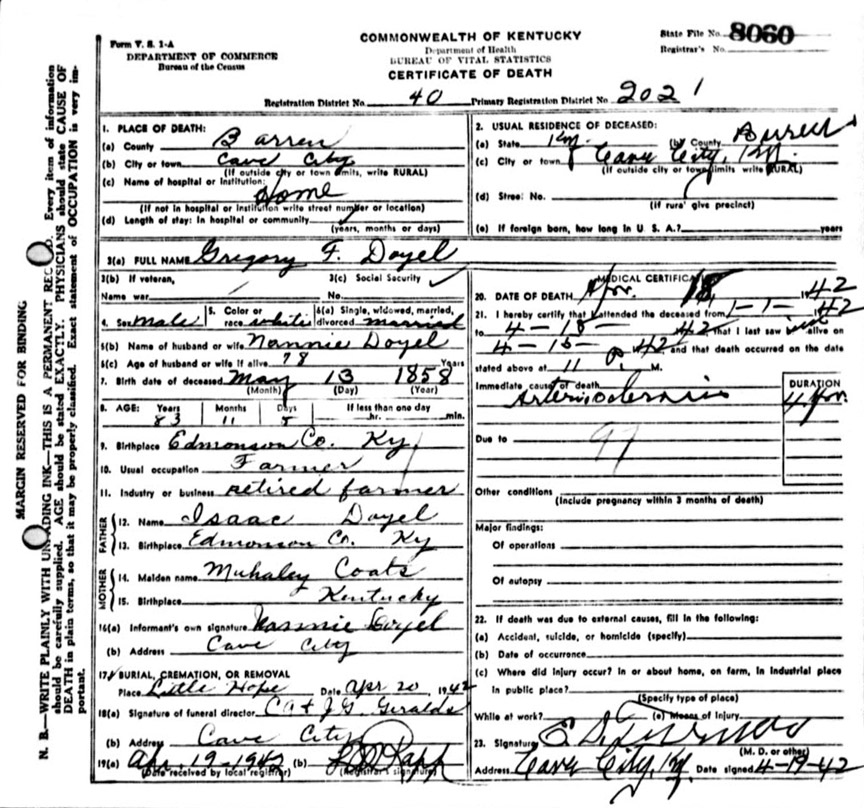 Form V. S. 1-A
DEPARTMENT OF COMMERCE
Bureau of the Census
COMMONWEALTH OF KENTUCKY
Department of Health
BUREAU OF VITAL STATISTICS
CERTIFICATE OF DEATH
State File No. 8060
Registrar's No.
Registration District No. 40 Primary Registration District No. 2021
1. PLACE OF DEATH:
(a) County Barren
(b) City or town Cave City
(If outside city or town limits, write RURAL)
(c) Name of hospital or institution:
Home
(If not in hospital or institution write street number or location)
(d) Length of stay: In hospital or community
(years, months or days)
2. USUAL RESIDENCE OF DECEASED:
(a) State Ky. (b) County Barren
(c) City or town Cave City, Ky.
(If outside city or town limits write RURAL)
(d) Street No.
(If rural give precinct)
(e) If foreign born, how long in U. S. A.? years
3(a) FULL NAME Gregory F. Doyel
3(b) If veteran, 3(c) Social Security
Name war No.
4. Sex Male 5. Color or race white 6(a) Single, widowed, married, divorced married
6(b) Name of husband or wife Nannie Doyel
6(c) Age of husband or wife if alive 78 Years
7. Birth date of deceased May 13 1858
(Month) (Day) (Year)
8. AGE: Years Months Days If less than one day
83 11 5 hr. min.
9. Birthplace Edmonson Co. Ky.
10. Usual occupation Farmer
11. Industry or business retired farmer
FATHER
12. Name Isaac Doyel
13. Birthplace Edmonson Co. Ky
MOTHER
14. Maiden name Muhaley Coats
15. Birthplace Kentucky
16(a) Informant's own signature Nannie Doyel
(b) Address Cave City
17. BURIAL, CREMATION, OR REMOVAL
Place Little Hope Date Apr 20, 1942
18(a) Signature of funeral director C A & J G. Geralds
(b) Address Cave City
19(a) Apr. 19-1942 (b) Rapp
(Date received by local registrar) (Registrar's signature)
MEDICAL CERTIFICA
20. DATE OF DEATH Apr. 18, 1942
21. I hereby certify that I attended the deceased from 1-1-, 1942
to 4-18- 42 that I last saw alive on
4-18- 42 and that death occurred on the date
stated above at 11 P. M.
Immediate cause of death DURATION
Arteriosclerosis
Due to 97
Other conditions
(Include pregnancy within 3 months of death)
Major findings:
Of operations
Of autopsy
22. If death was due to external causes, fill in the following:
(a) Accident, suicide, or homicide (specify)
(b) Date of occurrence
(c) Where did injury occur? In or about home, on farm, in industrial place
in public place?
(Specify type of place)
While at work? (e) Means of injury
23. Signature
(M. D. or other)
Address Cave City, Ky. Date signed 4-19-42
MARGIN RESERVED FOR BINDING
N. B.—WRITE PLAINLY WITH UNFADING INK—THIS IS A PERMANENT RECORD. Every item of information
should be carefully supplied. AGE should be stated EXACTLY. PHYSICIANS should state CAUSE OF
DEATH in plain terms, so that it may be properly classified. Exact statement of OCCUPATION is very im-
portant.